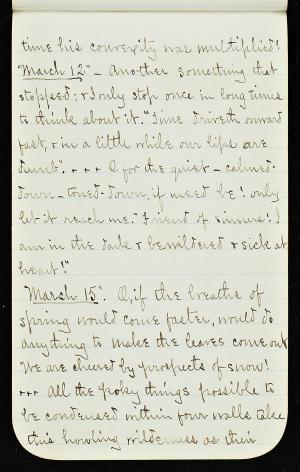 time his converzity was multiplied!
"March 12" - Another something that
stopped; & I only stop once in long times
to think about it. "Time driveth onward
fast, & in a little while our lips are
dumb". + + + O for the quiet - calmed-
down - toned-down, if need be! only
let it reach me. "Friend of sinners! I
am in the dark & bewildered & sick at
heart!"
"March 15". O, if the breathe of
spring would come faster, would do
anything to make the leaves come out
We are cheered by prospects of snow!
+++ All the poky things possible to
be condensed within four walls take
this howling wilderness as their